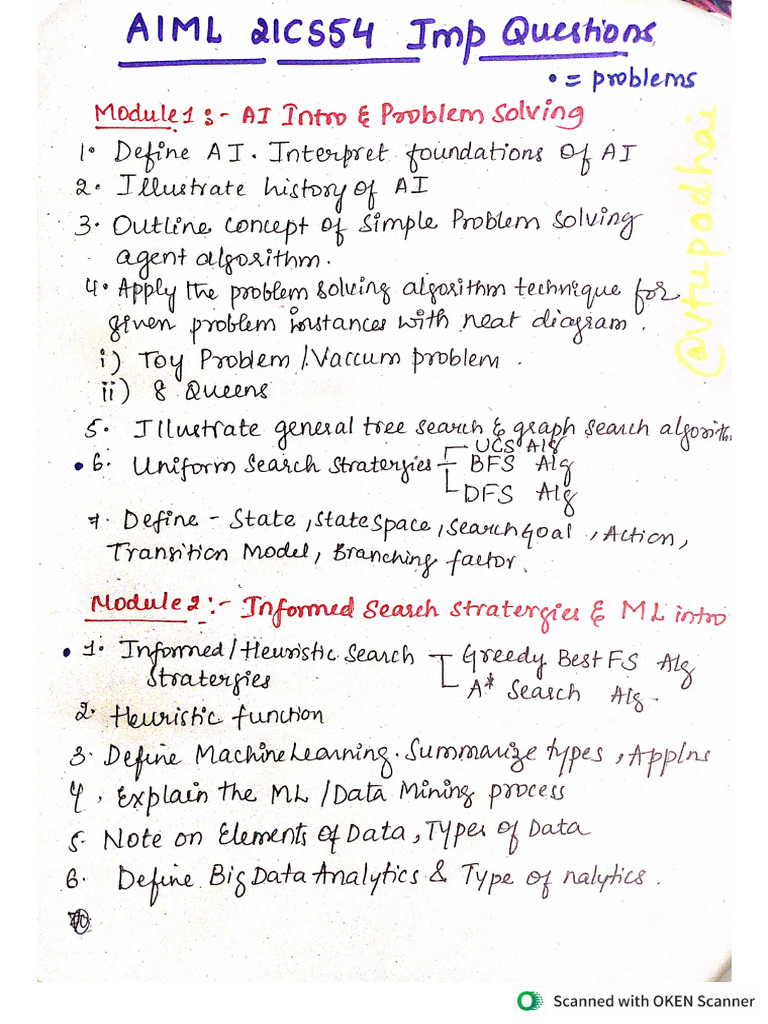 AIML 21CS54 Imp Questions
• = problems
Module 1 :- AI Intro & Problem Solving
1. Define AI. Interpret foundations of AI
2. Illustrate history of AI
3. Outline concept of simple Problem solving
agent algorithm.
4. Apply the problem solving algorithm technique for
given problem instances with neat diagram.
i) Toy Problem /. Vaccum problem.
ii) 8 Queens
5. Illustrate general tree search & graph search algorithm
UCS Alg
• 6. Uniform Search Stratergies BFS Alg
DFS Alg
7. Define - State, State Space, Search Goal, Action,
Transition Model, Branching factor.
Module 2 :- Informed Search Stratergies & ML intro
• 1. Informed / Heuristic Search Greedy Best FS Alg
Stratergies A* Search Alg.
2. Heuristic function
3. Define Machine Learning. Summarize types, Applns
4. Explain the ML / Data Mining process
5. Note on Elements of Data, Types of Data
6. Define Big Data Analytics & Type of nalytics.
@vtupadhai
Scanned with OKEN Scanner